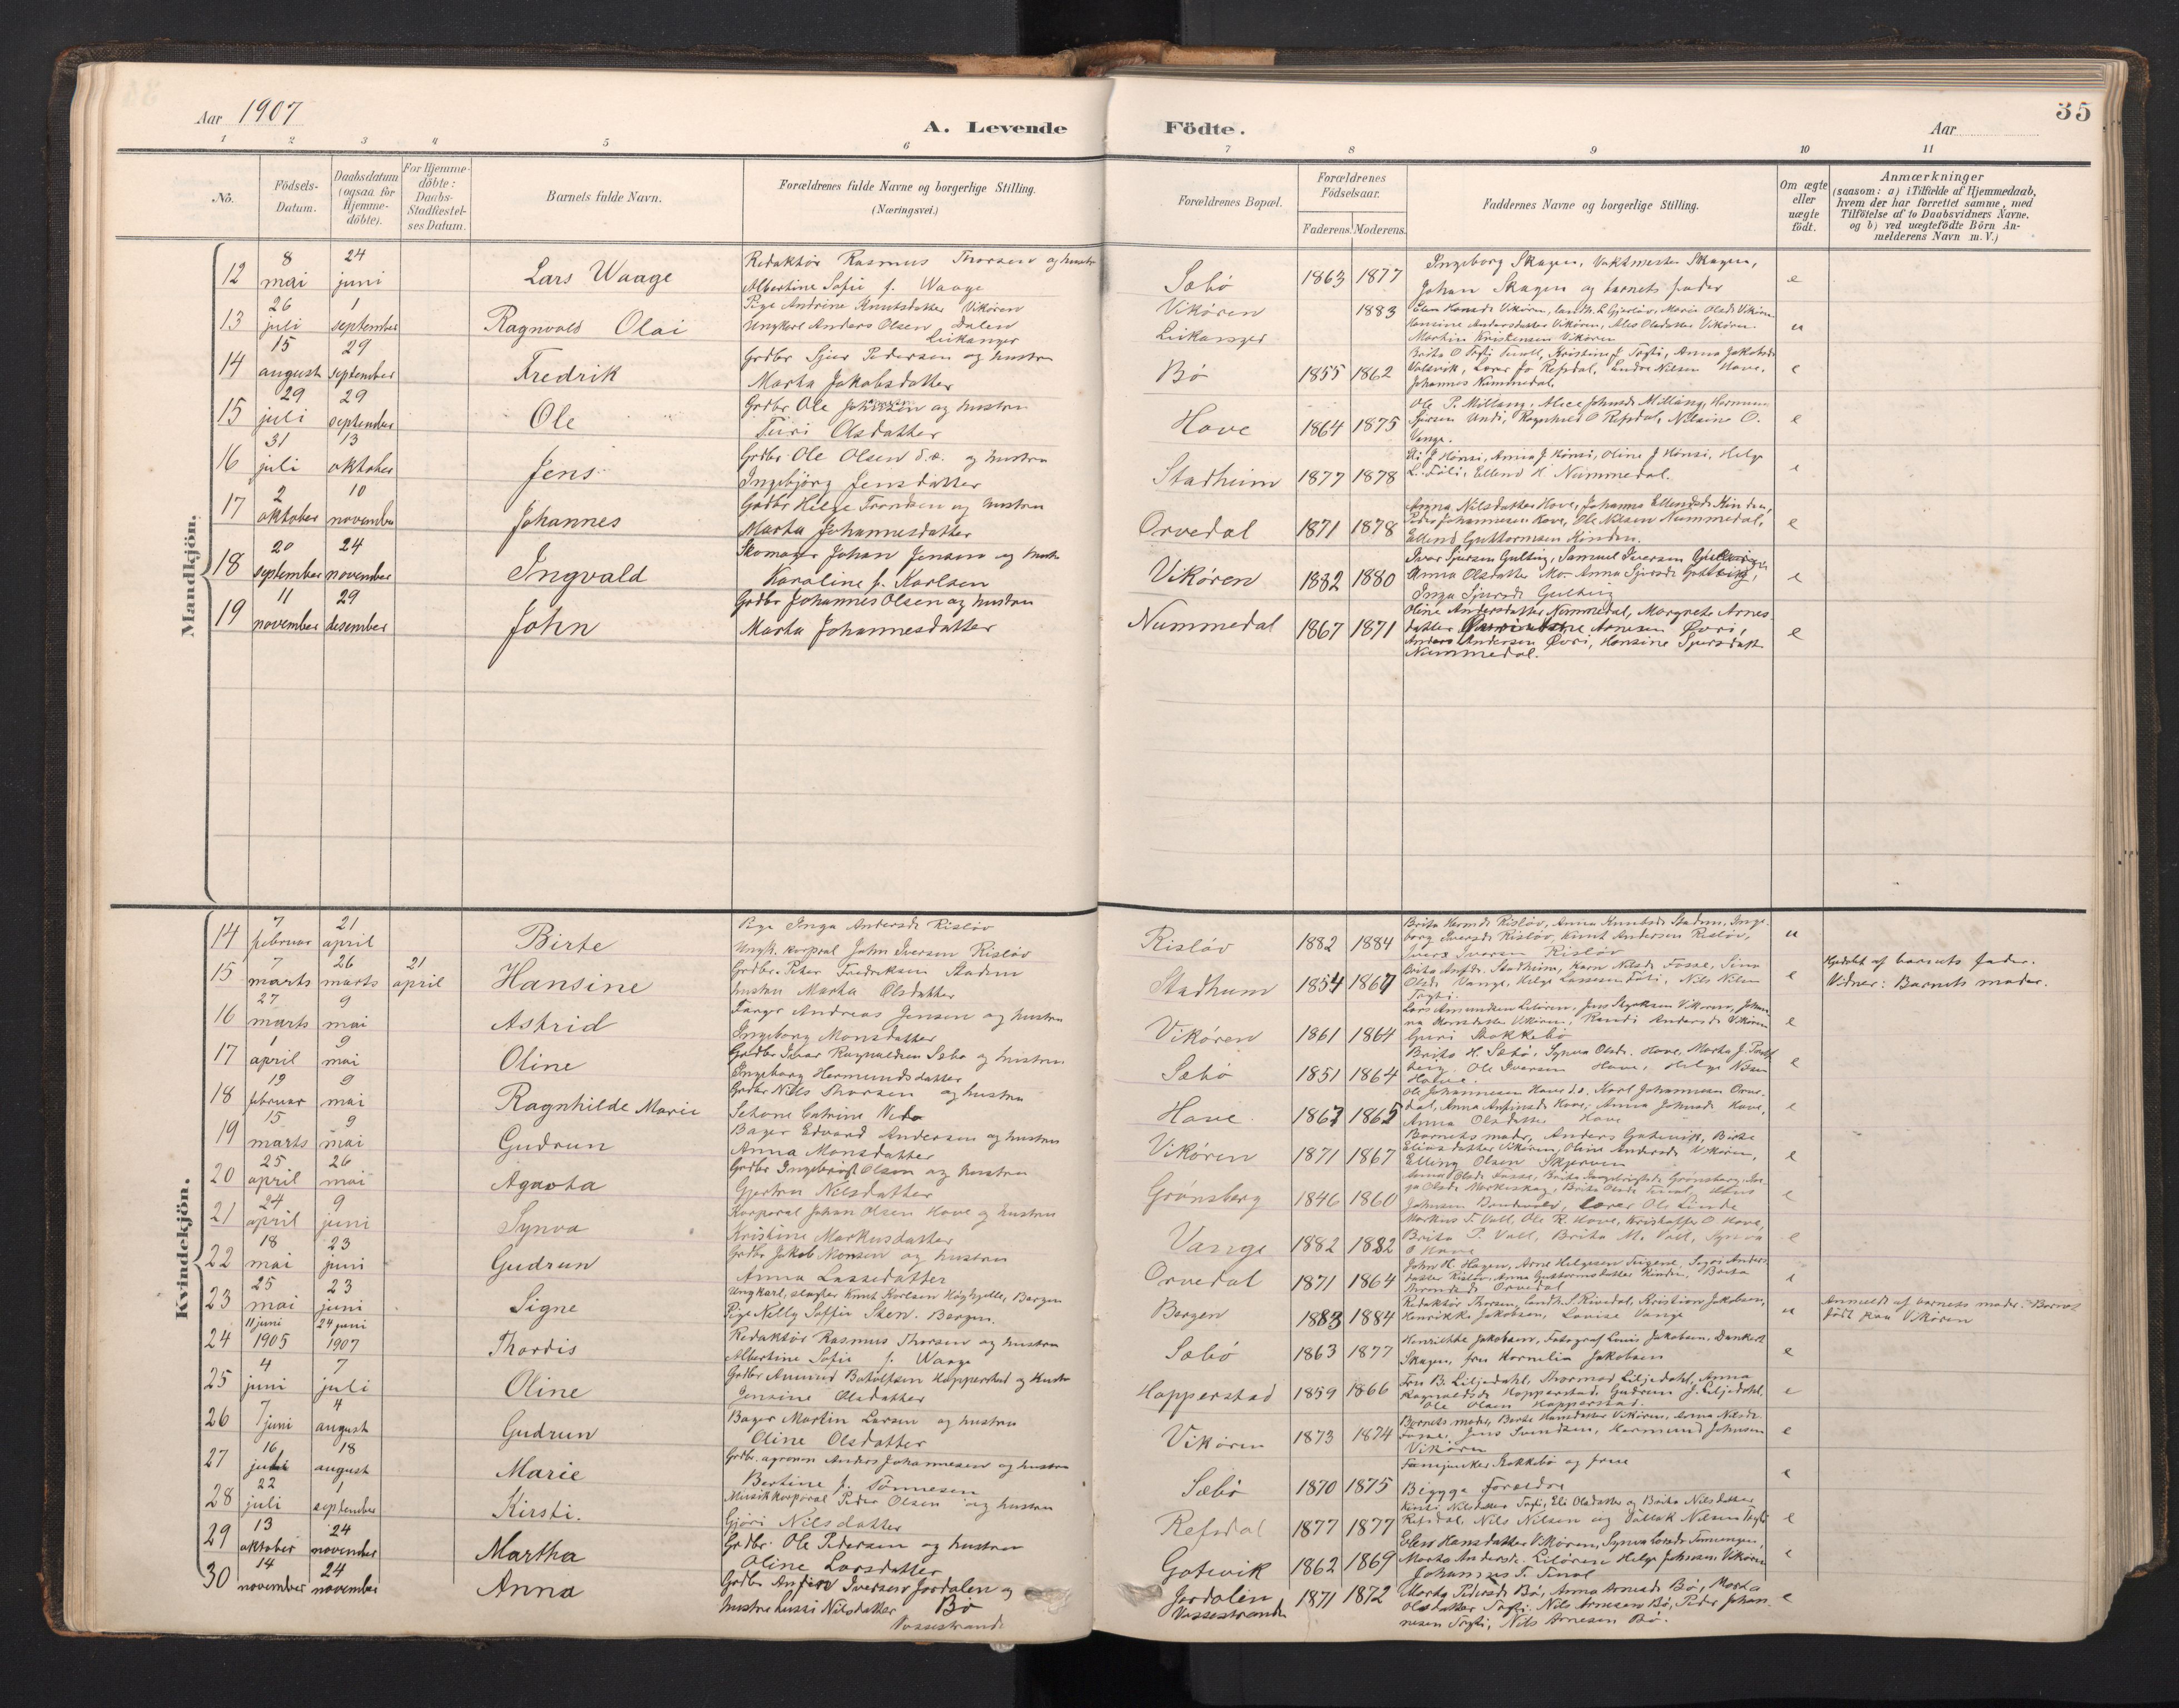 Aar 1907
A. Levende Födte.
Aar
35
1 2 3 4 5 6 7 8 9 10 11
No.
Födsels-Datum.
Daabsdatum (ogsaa for Hjemme-döbte).
For Hjemme-döbte: Daabs-Stadfæstel-ses Datum.
Barnets fulde Navn.
Forældrenes fulde Navne og borgerlige Stilling. (Næringsvei.)
Forældrenes Bopæl.
Forældrenes Födselsaar.
Faderens. Moderens.
Faddernes Navne og borgerlige Stilling.
Om ægte eller uægte födt.
Anmærkninger
(saasom: a) i Tilfælde af Hjemmedaab,
hvem der har forrettet samme, med
Tilföielse af to Daabsvidners Navne.
og b) ved uægtefödte Börn An-
melderens Navn m. V.)
Mandkjön.
12 8 mai 24 juni Lars Waage Redaktør Rasmus Thorsen og hustru
Albertine Sofie f. Waage Sæbø 1863 1877 Ingeborg Skagen, Vaktmester Skagen,
Johan Skagen og barnets fader e
13 26 juli 1 september Ragnvald Olai Pige Andrine Knutsdatter Vikøren
Ungkarl Anders Olsen Dalen
Leikanger Vikøren
Leikanger 1883 Vikøren
Hansine Andersdatter Vikøren, Olsdatter Vikøren
Martin Kristensen Vikøren u
14 15 august 29 september Fredrik Grdbr Sjur Pedersen og hustru
Marta Jakobsdatter Bø 1855 1862 Brita O Tryti Kristine Tryti, Anna Jakobsd
Refsdal, Endre Nilsen Hove,
Johannes Nummedal e
15 29 juli 29 september Ole Grdbr Ole og hustru
Turi Olsdatter Hove 1864 1875 Ole P.
Sjursen Undi, Ragnhild O Refsdal, O.
Vange. e
16 31 juli 13 oktober Jens Grdbr Ole Olsen og hustru
Ingebjørg Jensdatter Stadheim 1877 1878 J Hønsi, Anna J Hønsi, Oline J Hønsi, Helge
L. Føli, Ellend H Nummedal. e
17 2 oktober 10 november Johannes Grdbr Helge Trondsen og hustru
Marta Johannesdatter Orvedal 1871 1878 Anna Nilsdatter Hove, Johanna Ellendsd Hinden,
Peder Johannesen Hove, Ole Nilsen Nummedal,
Ellend Guttormsen Hinden. e
18 20 september 24 november Ingvald Skomager Johan Jensen og hustru
Karoline f. Karlsen Vikøren 1882 1880 Ivar Sjursen Gulting, Samuel Iversen
Anna Olsdatter Mo Anna Sjursd
Inga Sjursd Gulting e
19 11 november 29 desember John Grdbr Johannes Olsen og hustru
Marta Johannesdatter Nummedal 1867 1871 Oline Andersdatter Nummedal, Margrete Arnes
datter Arnesen Øvri,
Anders Andersen Øvri, Hansine Sjursdatt
Nummedal. e
Kvindekjön.
14 7 februar 21 april Birte Pige Inga Andersd Risløv
Ungk. korporal John Iversen Risløv Risløv 1882 1884 Brita Risløv, Anna Knutsd Stadem, Inge-
borg Iversd Risløv, Knut Andersen Risløv,
Iver Iversen Risløv u
15 7 marts 26 marts 21 april Hansine Grdbr. Peter Fredriksen Stadem
hustru Marta Olsdatter Stadheim 1854 1867 Brita Stadheim, Karn Nilsd Fosse,
Olsd Vange, Helge Lassesen Føli, Nils Nilsen
Tryti. e Hjdøbt af barnets fader.
Vidner: Barnets moder.
16 27 marts 9 mai Astrid Farger Andreas Jensen og hustru
Ingeborg Monsdatter Vikøren 1861 1864 Lars Amundsen Liløren, Jens Vikøren, Johan-
na Monsdatter Vikøren, Randi Andersd Vikøren
Guri Stokkebø e
17 1 april 9 mai Oline Grdbr Ivar Ragnvaldsen Sæbø og hustru
Ingeborg Hermundsdatter Sæbø 1851 1864 Brita H. Sæbø, Synva Olsd. Hove, Marta J.
Ole Iversen Hove, Helge Nilsen
Hove. e
18 19 februar 9 mai Ragnhilde Marie Grdbr Nils Thorsen og hustru
Catrine Hove 1863 1865 Ole Johannesen Hove Karl Johannesen Orve-
dal, Anna Hove, Anna Johnsd. Hove,
Anna Olsdatter Hove e
19 15 marts 9 mai Gudrun Bager Edvard Andersen og hustru
Anna Monsdatter Vikøren 1871 1867 Barnets moder, Anders Gatevik, Birte
Eliasdatter Vikøren, Oline Andersd Vikøren,
Elling Olsen e
20 25 april 26 mai Agaata Grdbr Ingebrigt Olsen og hustru
Gjertru Nilsdatter Grønsberg 1846 1860 Anna Olsd Fosse, Brita Ingebrigtsd Grønsberg,
Olsd Brita Olsd Tenal, Hans
Johnsen lærer Ole Linde e
21 24 april 9 juni Synva Korporal Johan Olsen Hove og hustru
Kristine Markusdatter Vange 1882 1882 Markus T. Voll, Ole R. Hove, Kristoffer O Hove,
Brita P. Voll, Brita M. Voll, Synva
O Hove e
22 18 mai 23 juni Gudrun Grdbr Jakob Monsen og hustru
Anna Lassedatter Orvedal 1871 1864 John K. Hagen, Arne Helgesen Anders-
datter Risløv, Anna Guttormsdatter Hinden, Brita
Orvedal e
23 25 mai 23 juni Signe Ungkarl, slagter Knut Karlsen Høghjelle, Bergen
Pige Nelly Soffie Sten. Bergen. Bergen 1883 1884 Redaktør Thorsen, landh. S Rivedal, Kristian Jakobsen,
Henrikke Jakobsen, Lovise Vange u Anmeldt af barnets moder. Barnet
født paa Vikøren
24 11 juni 1905 24 juni 1907 Thordis Redaktør Rasmus Thorsen og hustru
Albertine Sofie f. Waage Sæbø 1863 1877 Henrikke Jakobsen, Fotograf Louis Jakobsen, Dankert
Skagen, fru Kornelia Jakobsen e
25 4 juni 7 juli Oline Grdbr Amund Botolfsen Hopperstad og hustru
Jensine Olsdatter Hopperstad 1859 1866 Fru B. Liljedahl, Thormod Liljedahl, Anna
Ragnvaldsd Hopperstad, Gudrun J. Liljedahl,
Ole Olsen Hopperstad. e
26 7 juni 4 august Gudrun Bager Martin Larsen og hustru
Oline Olsdatter Vikøren 1873 1874 Barnets moder, Berte Hansdatter Vikøren, Anna Nilsd.
Fosse, Jens Svendsen, Hermund Johnsen
Vikøren e
27 16 18 august Marie Grdbr. agronom Anders Johannesen og hustru
Bertine f. Tønnesen Sæbø 1870 1875 Fanejunker Stokkebø og frue
Begge Forældre e
28 22 juli 1 september Kirsti. Musikkorporal Peder Olsen og hustru
Gjøri Nilsdatter Refsdal 1877 1877 Kirsti Nilsdatter Tryti, Eli Olsdatter og Brita Nilsdatter
Refsdal, Nils Nilsen og Nilsen Tryti e
29 13 oktober 24 november Martha Grdbr. Ole Pedersen og hustru
Oline Larsdatter Gatevik 1862 1869 Elen Hansdatter Vikøren, Synva Larsd
Marta Andersd. Liløren Helge Johnsen Vikøren
Johannes T. Tenal e
30 14 november 24 november Anna Grdbr Anfin Iversen Jordalen og
hustru Lussi Nilsdatter Bø
Vossestranden Jordalen
Vossestranden 1871 1872 Marta Pedersd Bø, Anna Arnesd Bø, Marta
Olsdatter Tryti, Nils Arnesen Bø, Peder Johan-
nesen Tryti, Nils Arnesen Bø. e